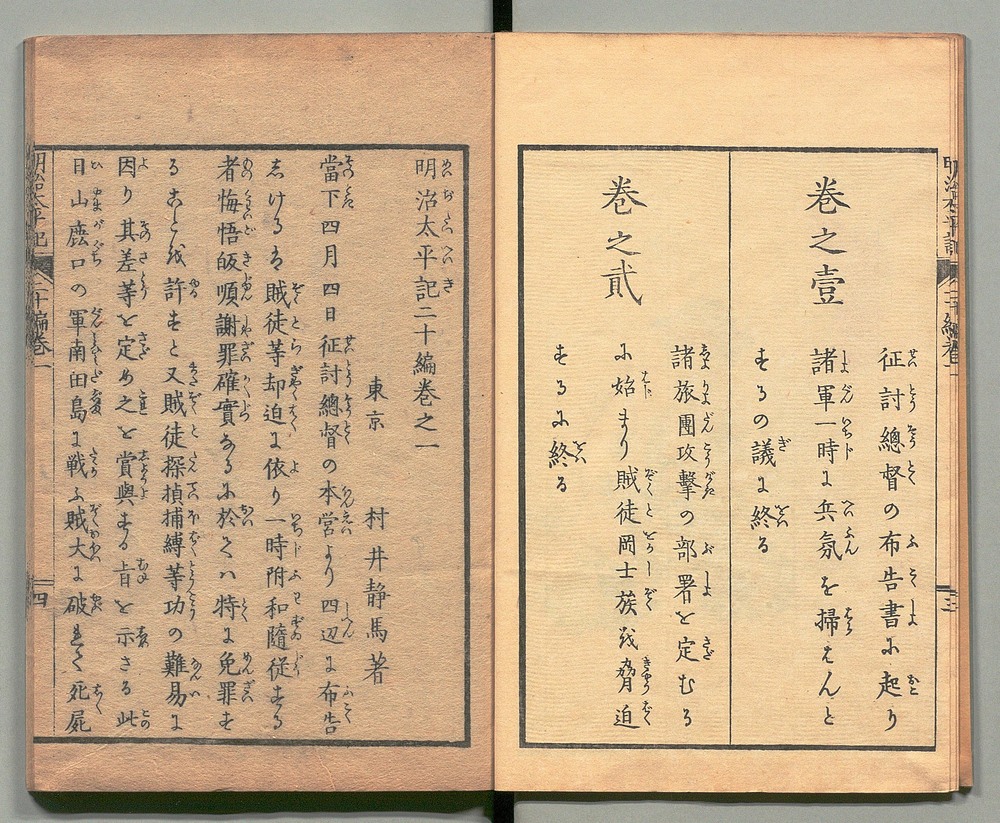 征討總督の布告書に起り
卷之壹
諸軍一時に兵氛を掃はんと
するの議に終る
諸旅團攻擊の部署を定むる
卷之貳
に始まり賊徒岡士族を脅迫
するに終る
明治太平記二十編卷之一
東京 村井静馬著
當下四月四日征討總督の本営より四辺に布告
しける は賊徒等却迫に依り一時附和隨從する
者悔悟皈順謝罪確實なるに於ては特に免罪す
ることを許すと又賊徒探偵捕縛等功の難易に
因り其差等を定め之を賞與する旨を示さる此
日山鹿口の軍南田島に戦ふ賊大に破れて死屍
明治太平記 二十編卷一 四
明治太平記 二十編卷一 三